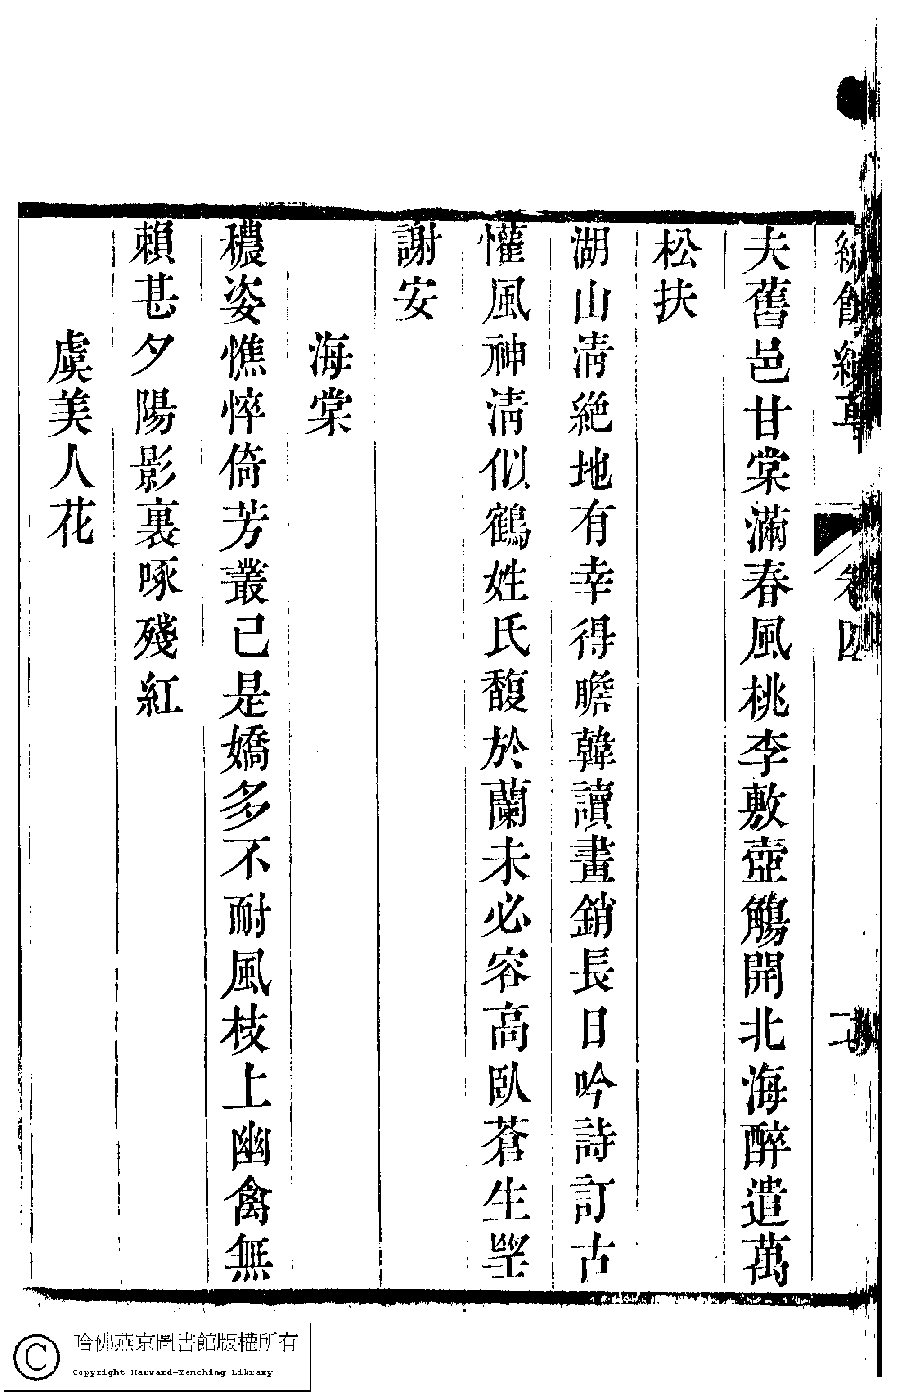 繡餘續草 卷四
夫舊邑甘棠滿春風桃李敷壺觴開北海醉遣萬
松扶
湖山清絶地有幸得瞻韓讀畫銷長日吟詩訂古
懽風神清似鶴姓氏馥於蘭未必容高臥蒼生朢
謝安
海棠
穠姿憔悴倚芳叢已是嬌多不耐風枝上幽禽無
賴甚夕陽影裏啄殘紅
虞美人花
哈佛燕京圖書館版權所有
Copyright Harvard-Yenching Library